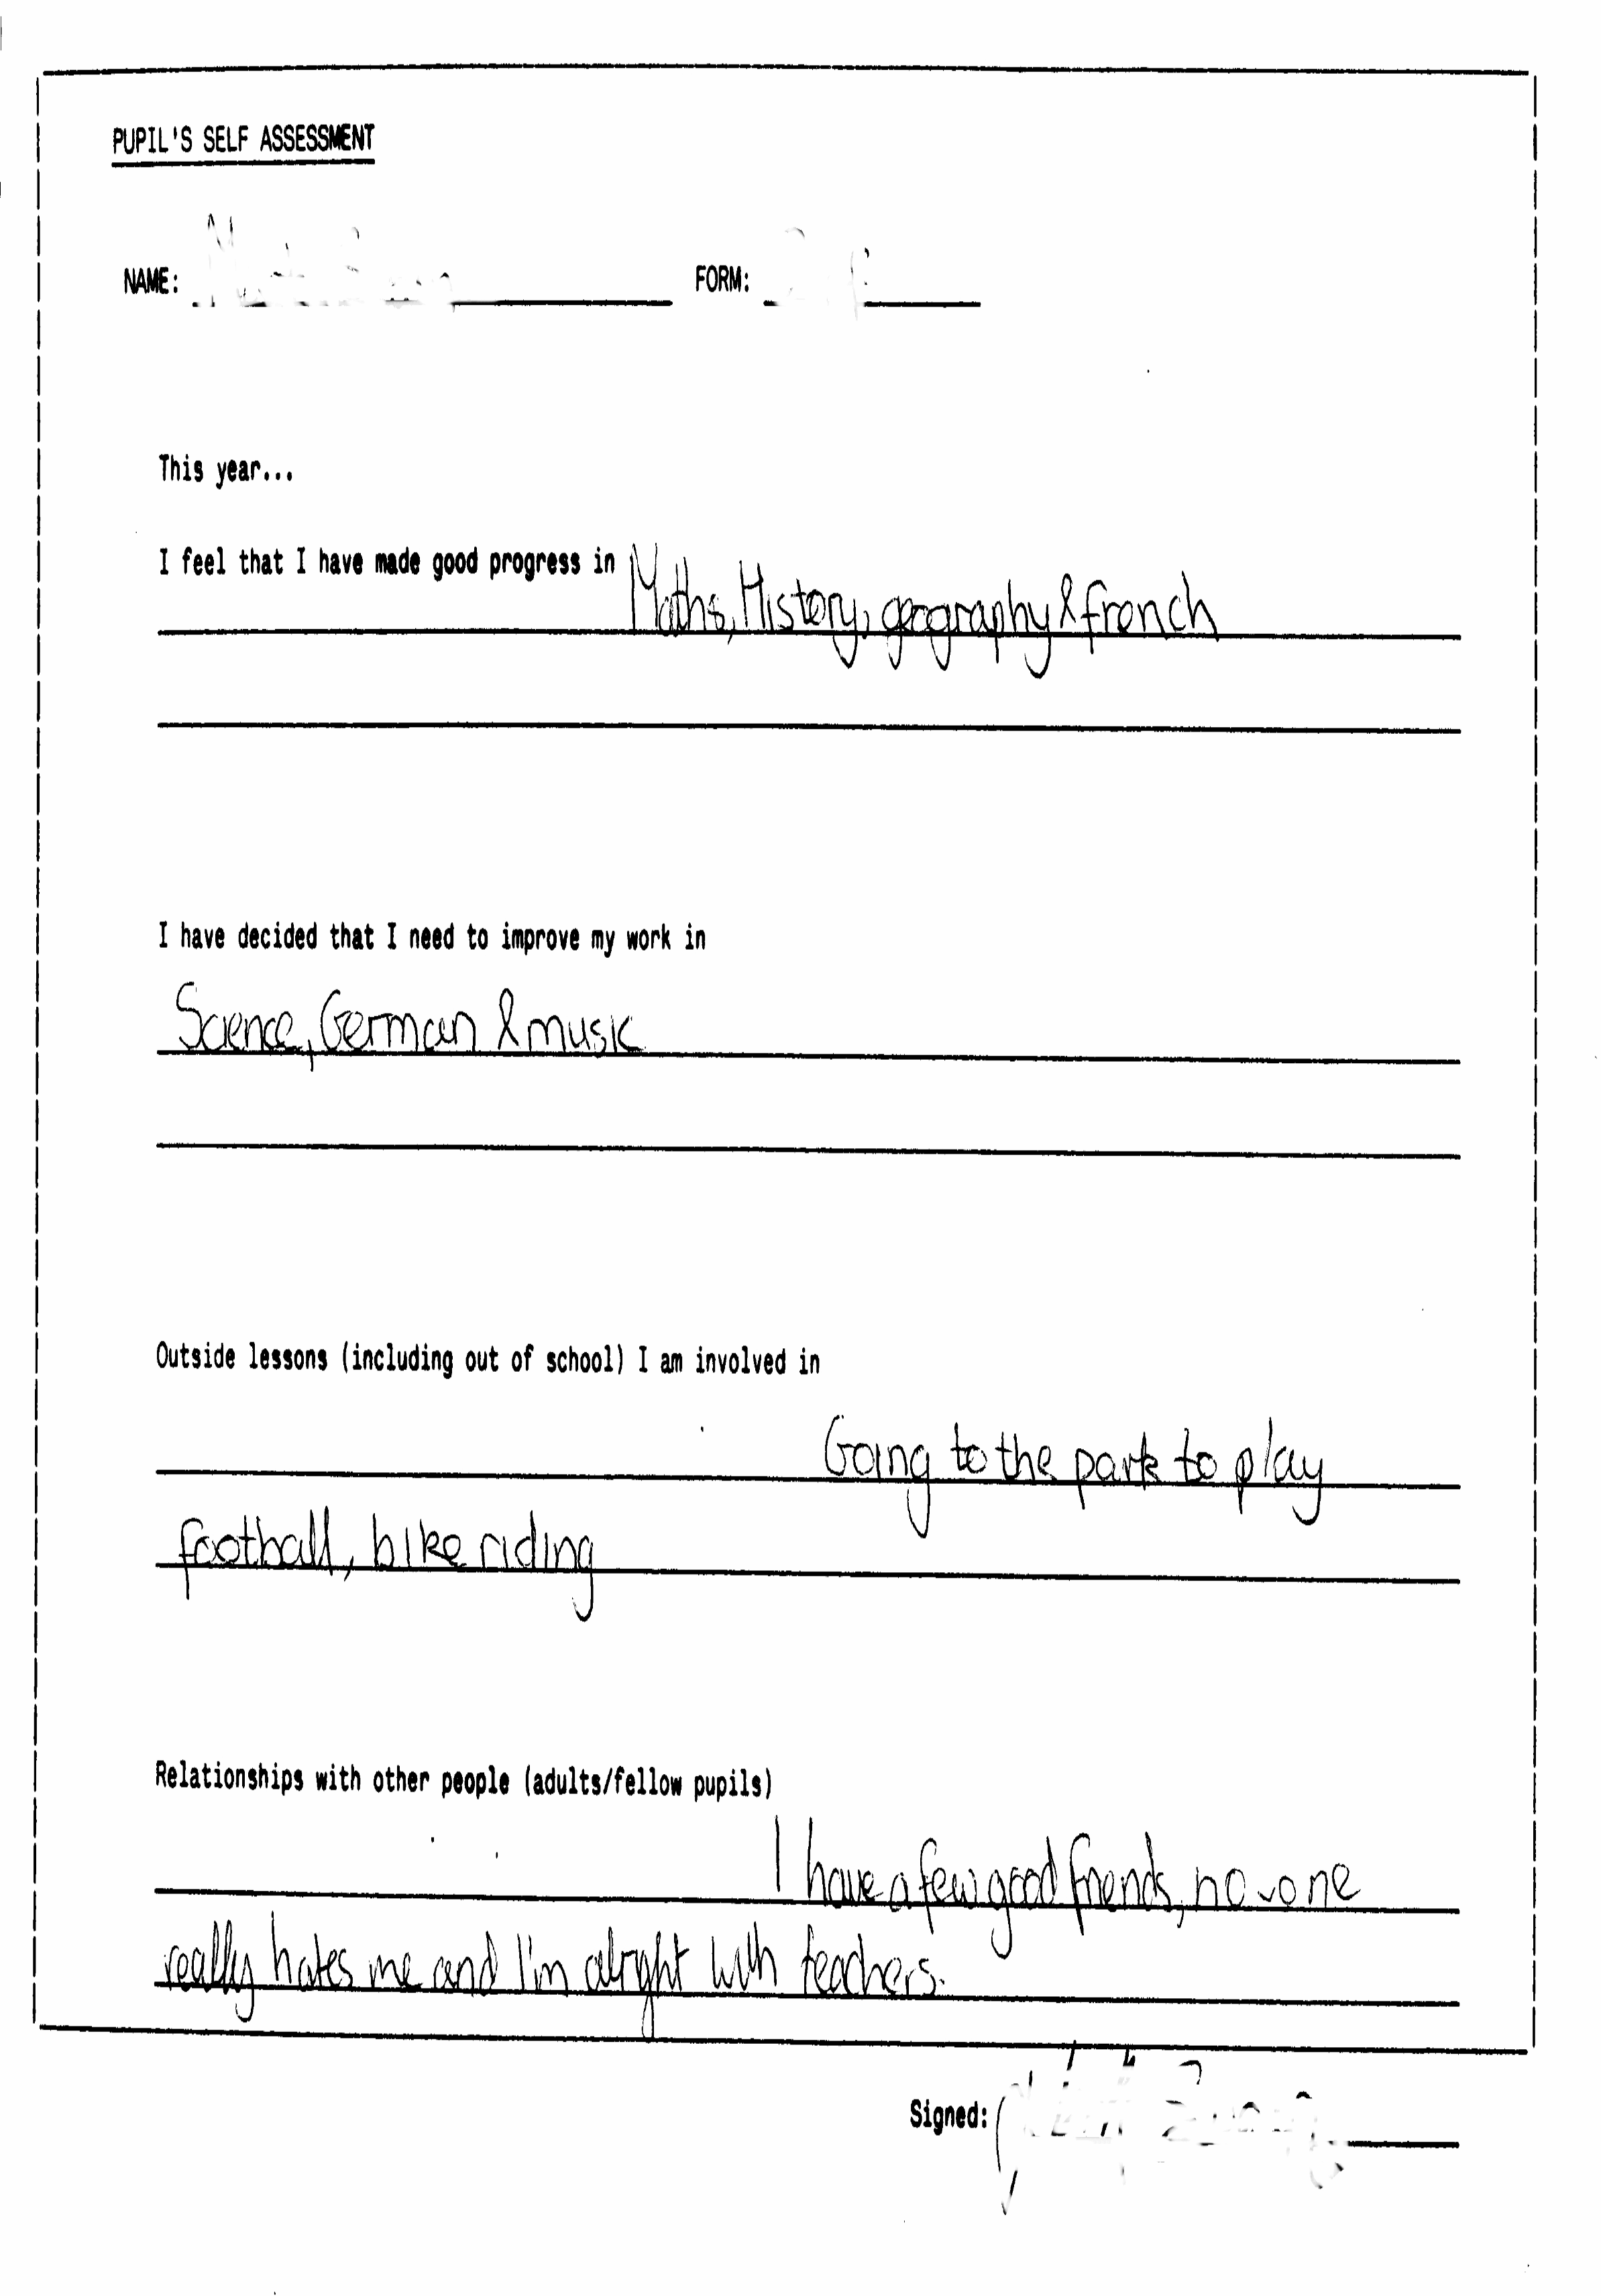 PUPIL'S SELF ASSESSMENT
NAME: FORM:
This year...
I feel that I have made good progress in
Maths, History, geography & french
I have decided that I need to improve my work in
Science, German & music
Outside lessons (including out of school) I am involved in
Going to the park to play
football, bike riding
Relationships with other people (adults/fellow pupils)
I have a few good friends, no-one
really hates me and I'm alright with teachers.
Signed: